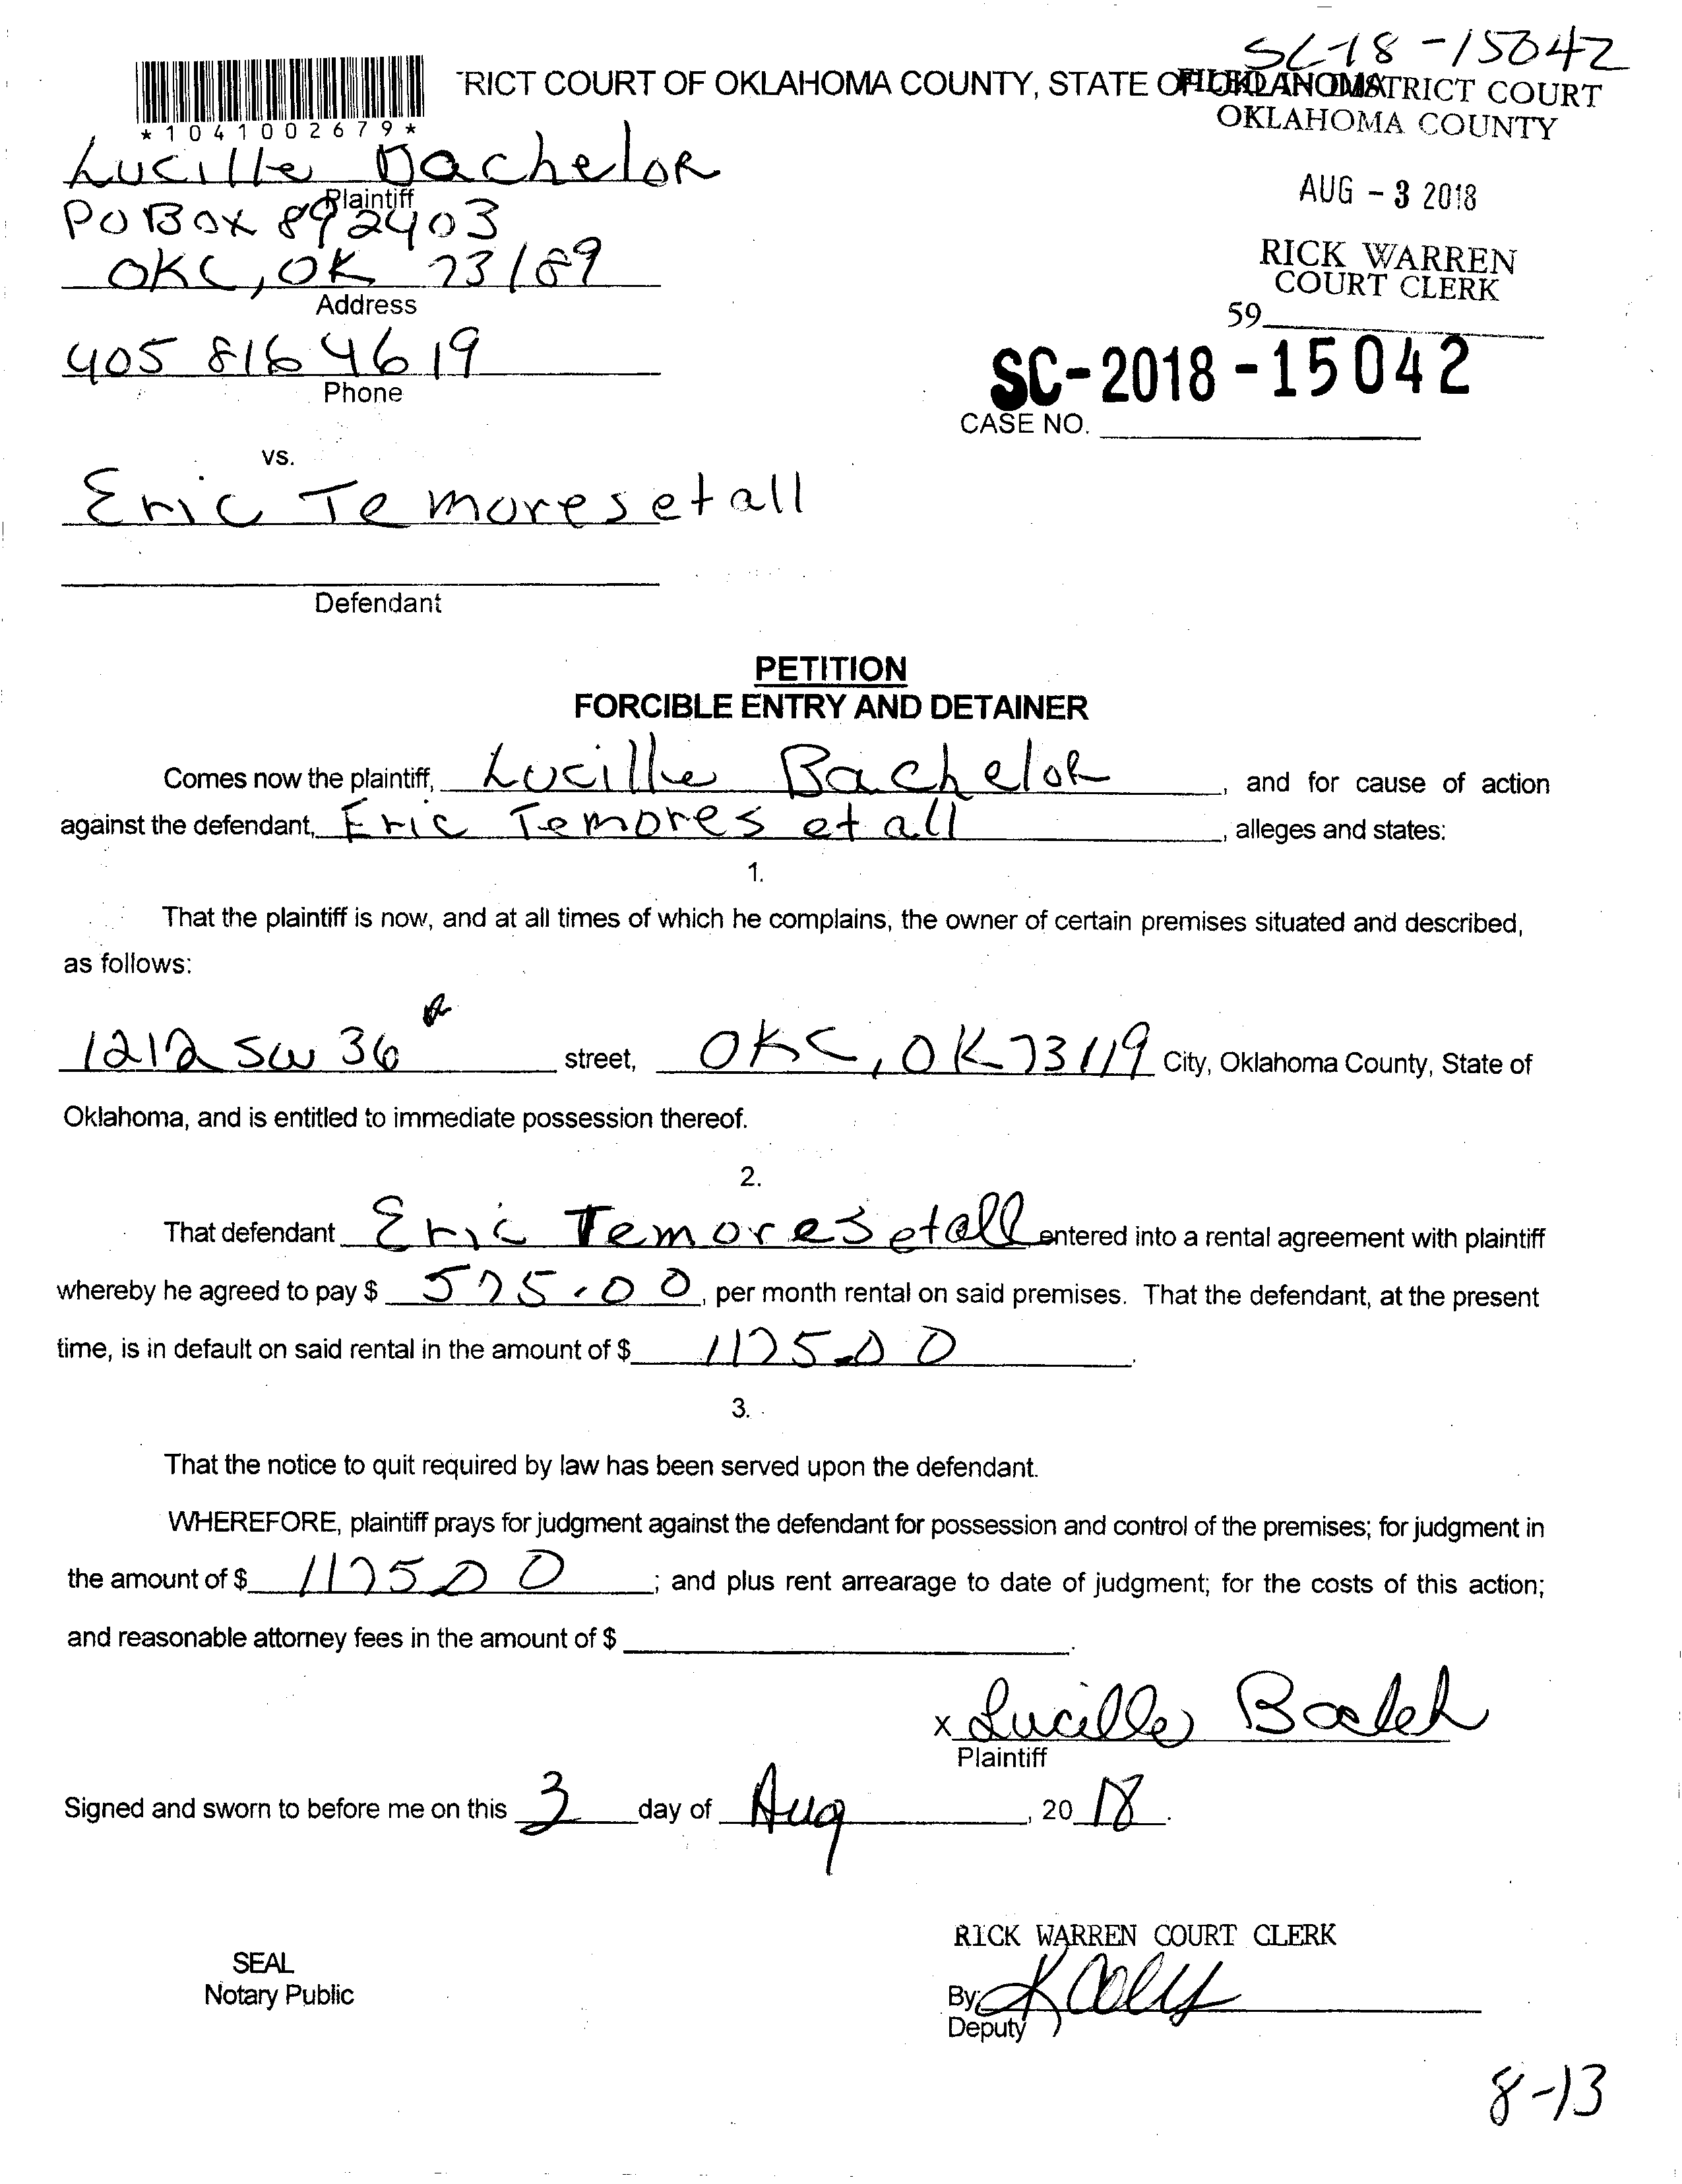 SC-18-15042
RICT COURT OF OKLAHOMA COUNTY, STATE OF OKLAHOMA
FILED IN DISTRICT COURT
OKLAHOMA COUNTY
*1041002679*
Lucille Bachelor
Plaintiff
AUG - 3 2018
PO BOX 892403
OKC, OK 73189
Address
RICK WARREN
COURT CLERK
59
405 816 4619
Phone
SC-2018-15042
CASE NO.
vs.
Eric Temores et all
Defendant
PETITION
FORCIBLE ENTRY AND DETAINER
Comes now the plaintiff, Lucille Bachelor, and for cause of action
against the defendant, Eric Temores et all, alleges and states:
1.
That the plaintiff is now, and at all times of which he complains, the owner of certain premises situated and described,
as follows:
1212 SW 36 street, OKC, OK 73119 City, Oklahoma County, State of
Oklahoma, and is entitled to immediate possession thereof.
2.
That defendant Eric Temores et all entered into a rental agreement with plaintiff
whereby he agreed to pay $ 575.00, per month rental on said premises. That the defendant, at the present
time, is in default on said rental in the amount of $ 1175.00.
3.
That the notice to quit required by law has been served upon the defendant.
WHEREFORE, plaintiff prays for judgment against the defendant for possession and control of the premises; for judgment in
the amount of $ 1175.00; and plus rent arrearage to date of judgment; for the costs of this action;
and reasonable attorney fees in the amount of $ .
x Lucille
Plaintiff
Signed and sworn to before me on this 3 day of Aug, 2018.
RICK WARREN COURT CLERK
SEAL
Notary Public
By:
Deputy
8-13